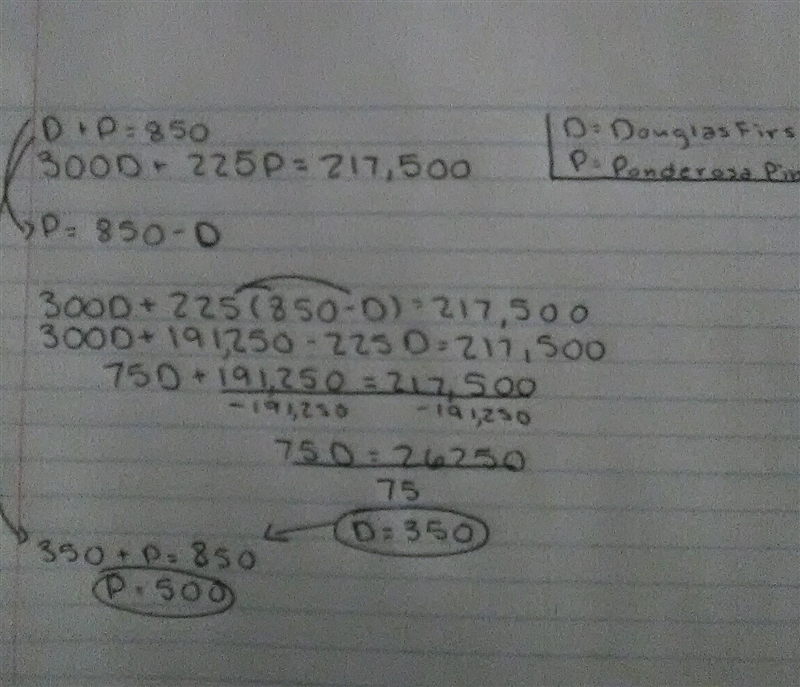 D + P = 850
300D + 225P = 217,500
D = Douglas Firs
P = Ponderosa Pin
P = 850 - D
300D + 225(850 - D) = 217,500
300D + 191,250 - 225D = 217,500
75D + 191,250 = 217,500
-191,250 -191,250
75D = 26250
75
D = 350
350 + P = 850
P = 500